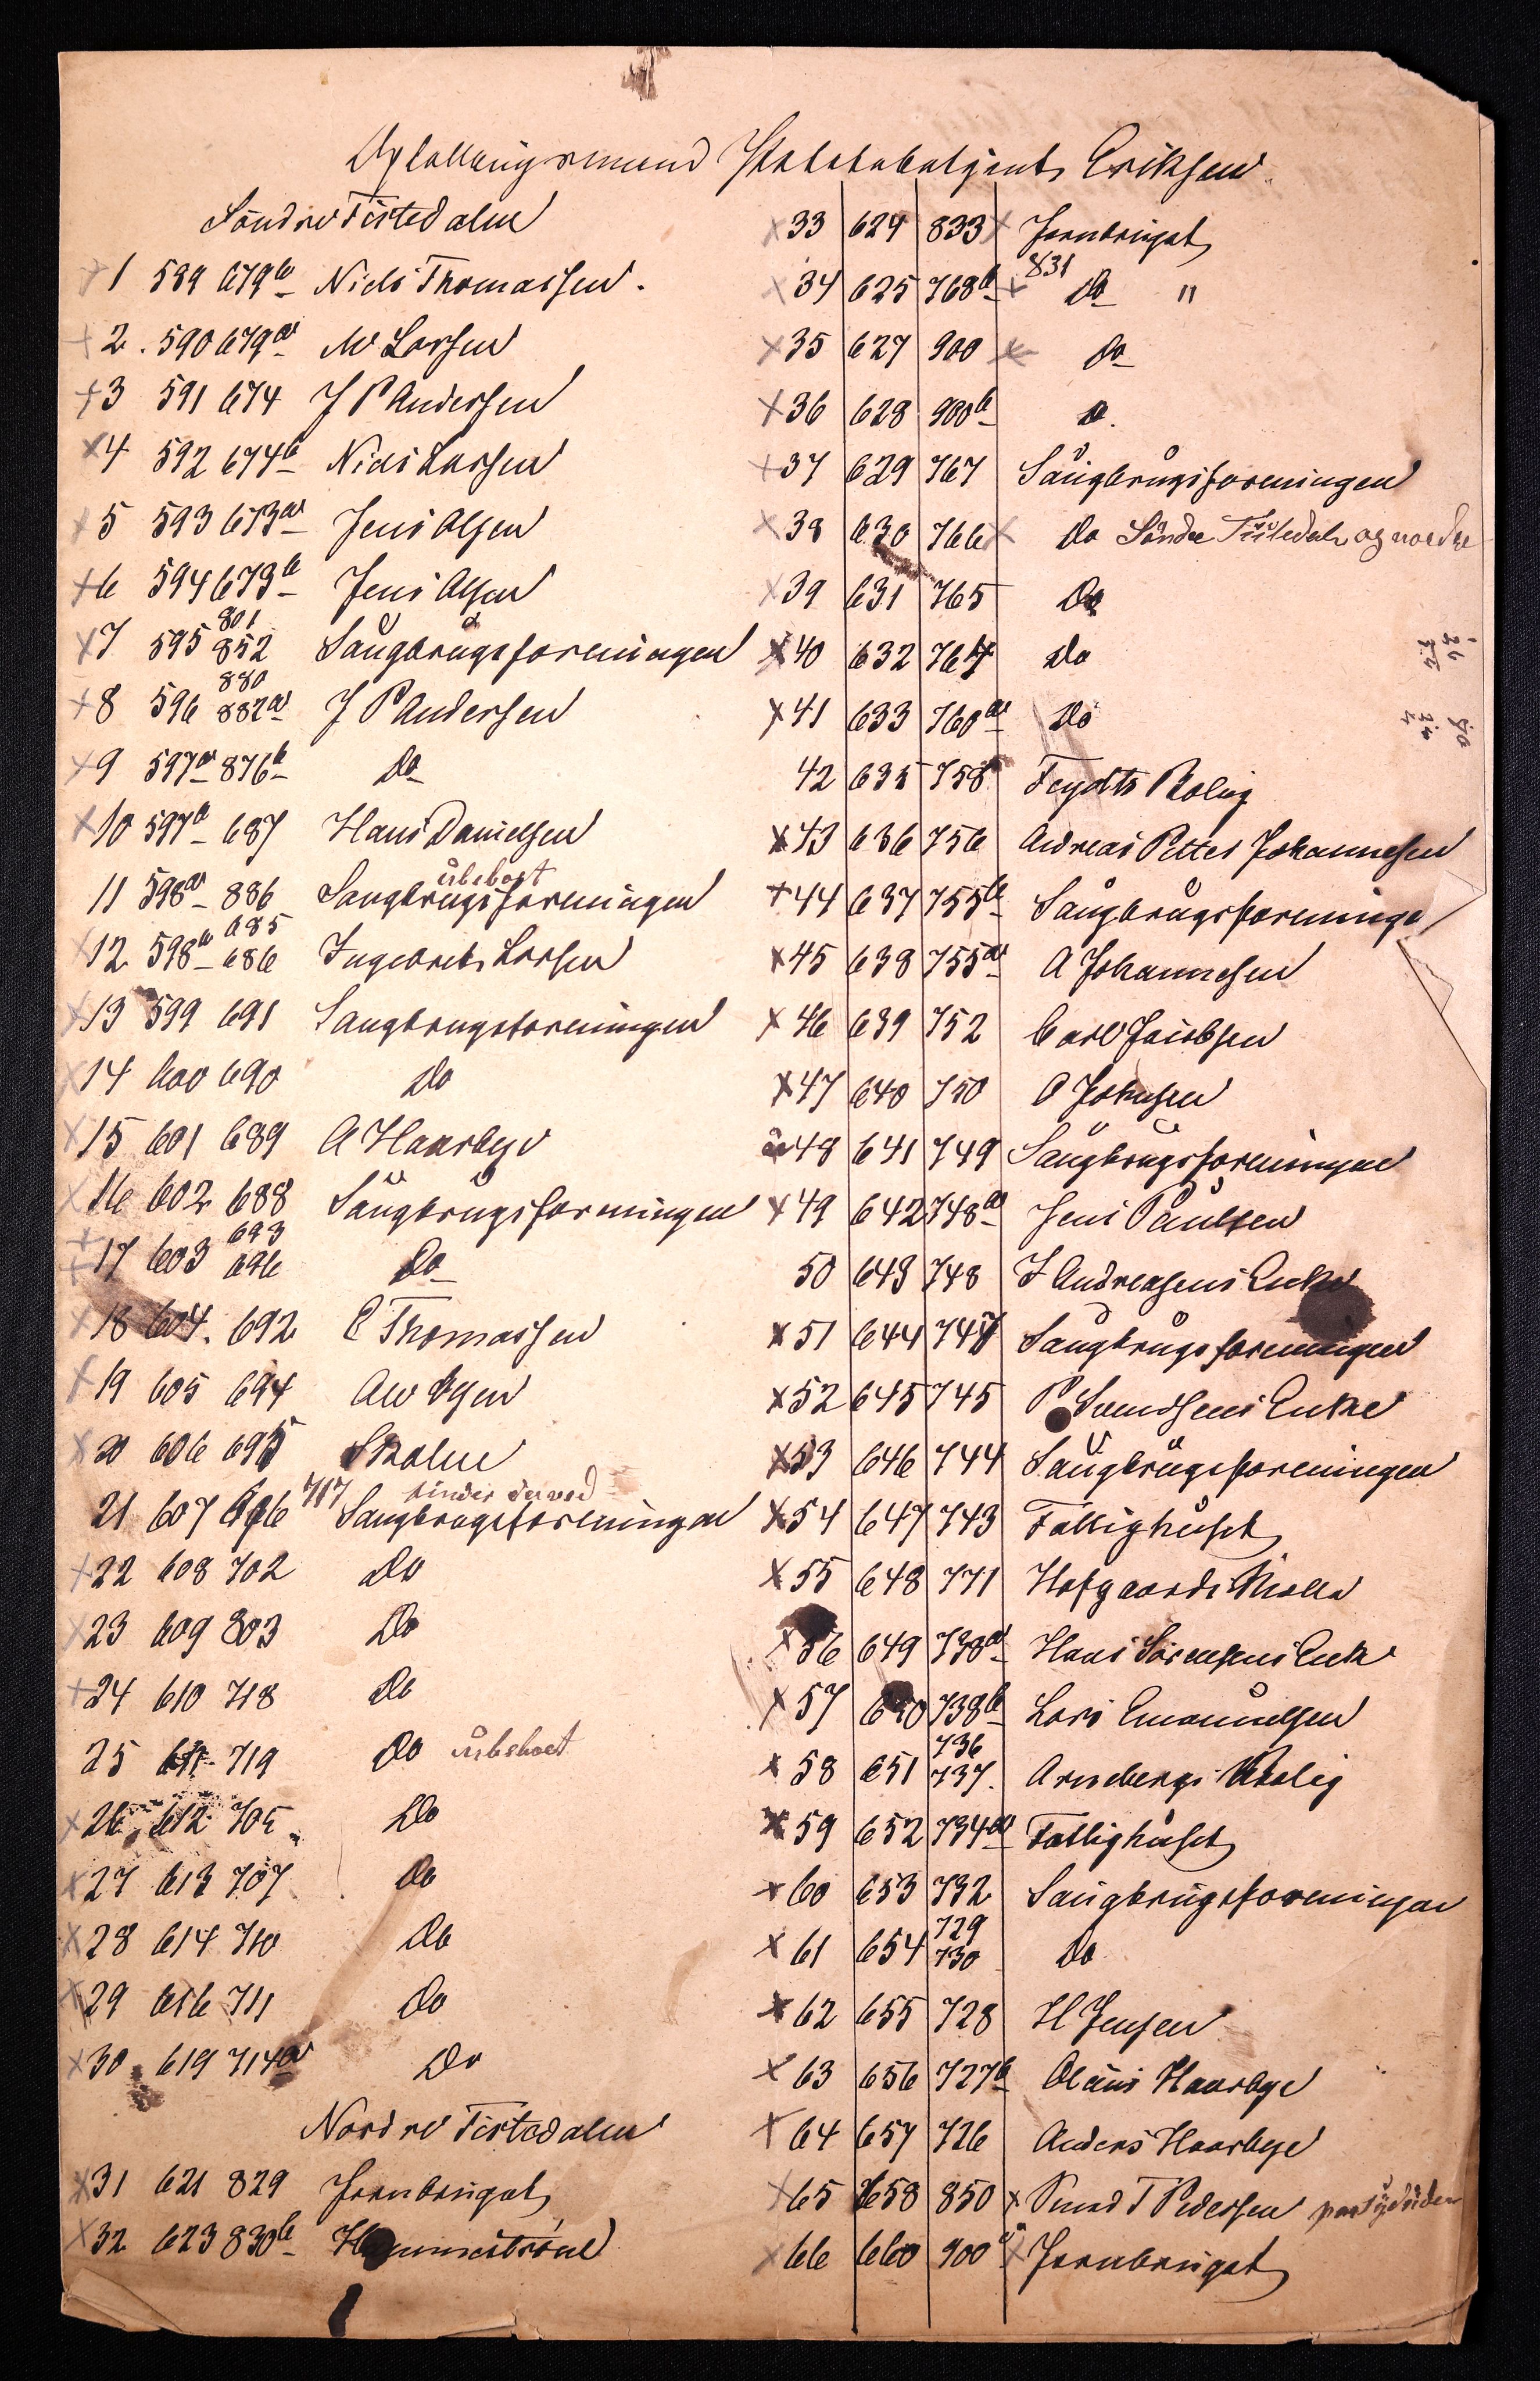 Optællingsmand Stadsbetjent Eriksen
Søndre Tistedalen
× 1 589 679b Niels Thomassen.
× 2. 590 679a M Larsen
× 3 591 674 J P Andersen
× 4 592 674b Niels Larsen
× 5 593 673a Jens Olsen
× 6 594 673b Jens Olsen
801
× 7 595 852 Saugbrugsforeningen
880
× 8 596 882a J P Andersen
× 9 597a 876b Do
× 10 597b 687 Hans Danielsen
ubeboet
11 598a 886 Saugbrugsforeningen
685
× 12 598b 686 Ingebret Larsen
× 13 599 691 Saugbrugsforeningen
× 14 600 690 Do
× 15 601 689 A Haarbye
× 16 602 688 Saugbrugsforeningen
693
× 17 603 696 Do
× 18 604. 692 E Thomassen
× 19 605 694 Olsen
× 20 606 695 Skolen
717
21 607 Saugbrugsforeningen
× 22 608 702 Do
× 23 609 803 Do
× 24 610 718 Do
25 611 719 Do ubeboet
× 26 612 705 Do
× 27 613 707 Do
× 28 614 710 Do
× 29 616 711 Do
× 30 619 714a Do
Nordre Tistedalen
× 31 621 829 Jernbruget
× 32 623 830b
× 33 624 833 × Jernbruget
831
× 34 625 768b × Do "
× 35 627 900 × Do
× 36 628 900b D.
× 37 629 767 Saugbrugsforeningen
× 38 630 766 × Do Søndre Tistedal og nordre
× 39 631 765 Do
× 40 632 764 Do
× 41 633 760a Do
42 635 758 Feydts Bolig
× 43 636 756 Andreas Petter Johannesen
× 44 637 755b Saugbrugsforeninge
× 45 638 755a A Johannesen
× 46 639 752 Carl Jacobsen
× 47 640 750 O Johnsen
48 641 749 Saugbrugsforeningen
× 49 642 748a Jens Paulsen
50 643 748 J Andreasens Enke
× 51 644 747 Saugbrugsforeningen
× 52 645 745 P Svendsens Enke
× 53 646 744 Saugbrugsforeningen
× 54 647 743 Fattighuset
× 55 648 771 Hofgaards Mølle
× 56 649 738a Hans Sørensens Enke
× 57 650 738b Lars Emanuelsen
736
× 58 651 737. Arnebergs Bolig
× 59 652 734a Fattighuset
× 60 653 732 Saugbrugsforeningen
729
× 61 654 730 Do
× 62 655 728 H Jensen
× 63 656 727b Olaus Haarbye
× 64 657 726 Anders Haarbye
× 65 658 850 × Smed T Pedersen paa Sydsiden
× 66 660 900a × Jernbruget